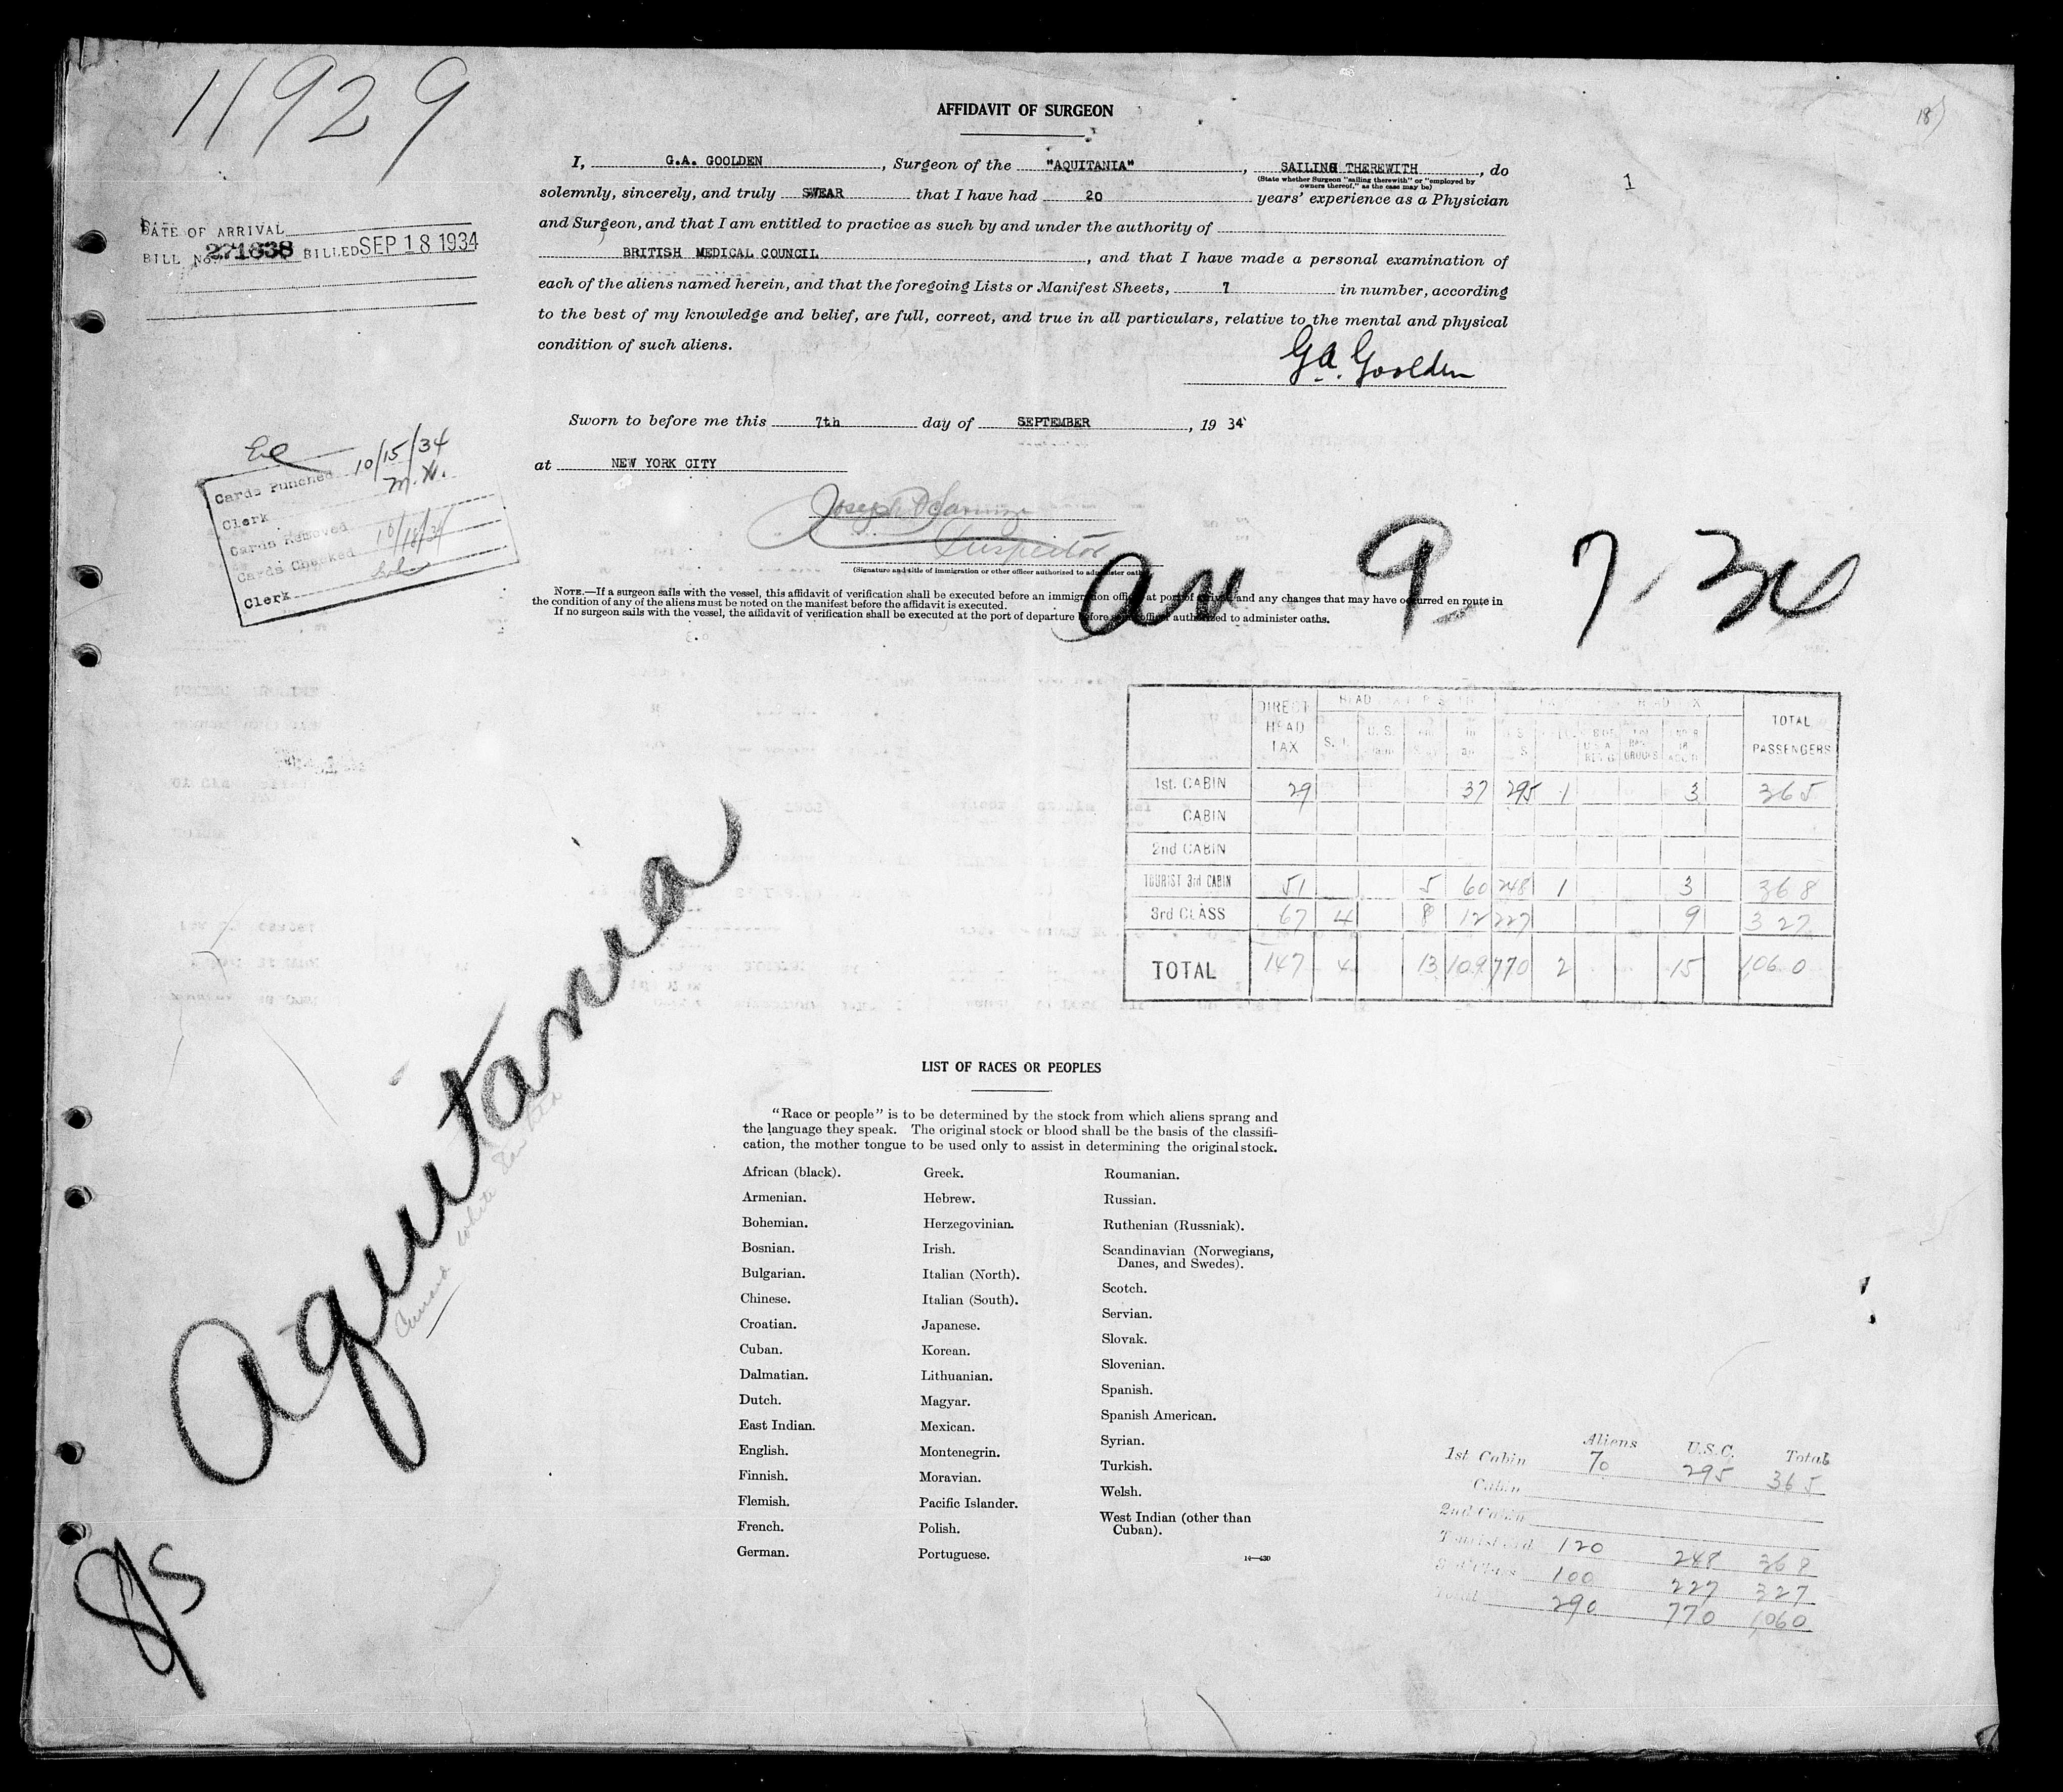 11929
18
1
AFFIDAVIT OF SURGEON
I, G.A. GOOLDEN, Surgeon of the "AQUITANIA", SAILING THEREWITH, do
(State whether Surgeon "sailing therewith" or "employed by
owners thereof," as the case may be)
solemnly, sincerely, and truly SWEAR that I have had 20 years' experience as a Physician
and Surgeon, and that I am entitled to practice as such by and under the authority of
BRITISH MEDICAL COUNCIL, and that I have made a personal examination of
each of the aliens named herein, and that the foregoing Lists or Manifest Sheets, 7 in number, according
to the best of my knowledge and belief, are full, correct, and true in all particulars, relative to the mental and physical
condition of such aliens.
G.A. Goolden
DATE OF ARRIVAL
BILL No. 271838 BILLED SEP 18 1934
Sworn to before me this 7th day of SEPTEMBER, 19 34
at NEW YORK CITY
Joseph
Inspector
(Signature and title of immigration or other officer authorized to administer oaths)
Cards Punched 10/15/34
Clerk M.H.
Cards Removed
Cards Checked 10/18/34
Clerk
NOTE.—If a surgeon sails with the vessel, this affidavit of verification shall be executed before an immigration officer at port of arrival and any changes that may have occurred en route in
the condition of any of the aliens must be noted on the manifest before the affidavit is executed.
If no surgeon sails with the vessel, the affidavit of verification shall be executed at the port of departure before some officer authorized to administer oaths.
arr 9-7-34
DIRECT HEAD TAX TOTAL PASSENGERS
1st. CABIN 29 37 295 1 3 365
CABIN
2nd CABIN
TOURIST 3rd CABIN 51 5 60 248 1 3 368
3rd CLASS 67 4 8 12 227 9 327
TOTAL 147 4 13 109 770 2 15 1060
Aquitania
Cunard White Star Ltd
S/S
LIST OF RACES OR PEOPLES
"Race or people" is to be determined by the stock from which aliens sprang and
the language they speak. The original stock or blood shall be the basis of the classifi-
cation, the mother tongue to be used only to assist in determining the original stock.
African (black).
Armenian.
Bohemian.
Bosnian.
Bulgarian.
Chinese.
Croatian.
Cuban.
Dalmatian.
Dutch.
East Indian.
English.
Finnish.
Flemish.
French.
German.
Greek.
Hebrew.
Herzegovinian.
Irish.
Italian (North).
Italian (South).
Japanese.
Korean.
Lithuanian.
Magyar.
Mexican.
Montenegrin.
Moravian.
Pacific Islander.
Polish.
Portuguese.
Roumanian.
Russian.
Ruthenian (Russniak).
Scandinavian (Norwegians,
Danes, and Swedes).
Scotch.
Servian.
Slovak.
Slovenian.
Spanish.
Spanish American.
Syrian.
Turkish.
Welsh.
West Indian (other than
Cuban).
14—430
Aliens U.S.C. Total
1st Cabin 70 295 365
Cabin
2nd Cabin
Tourist 3rd 120 248 368
3rd Class 100 227 327
Total 290 770 1,060